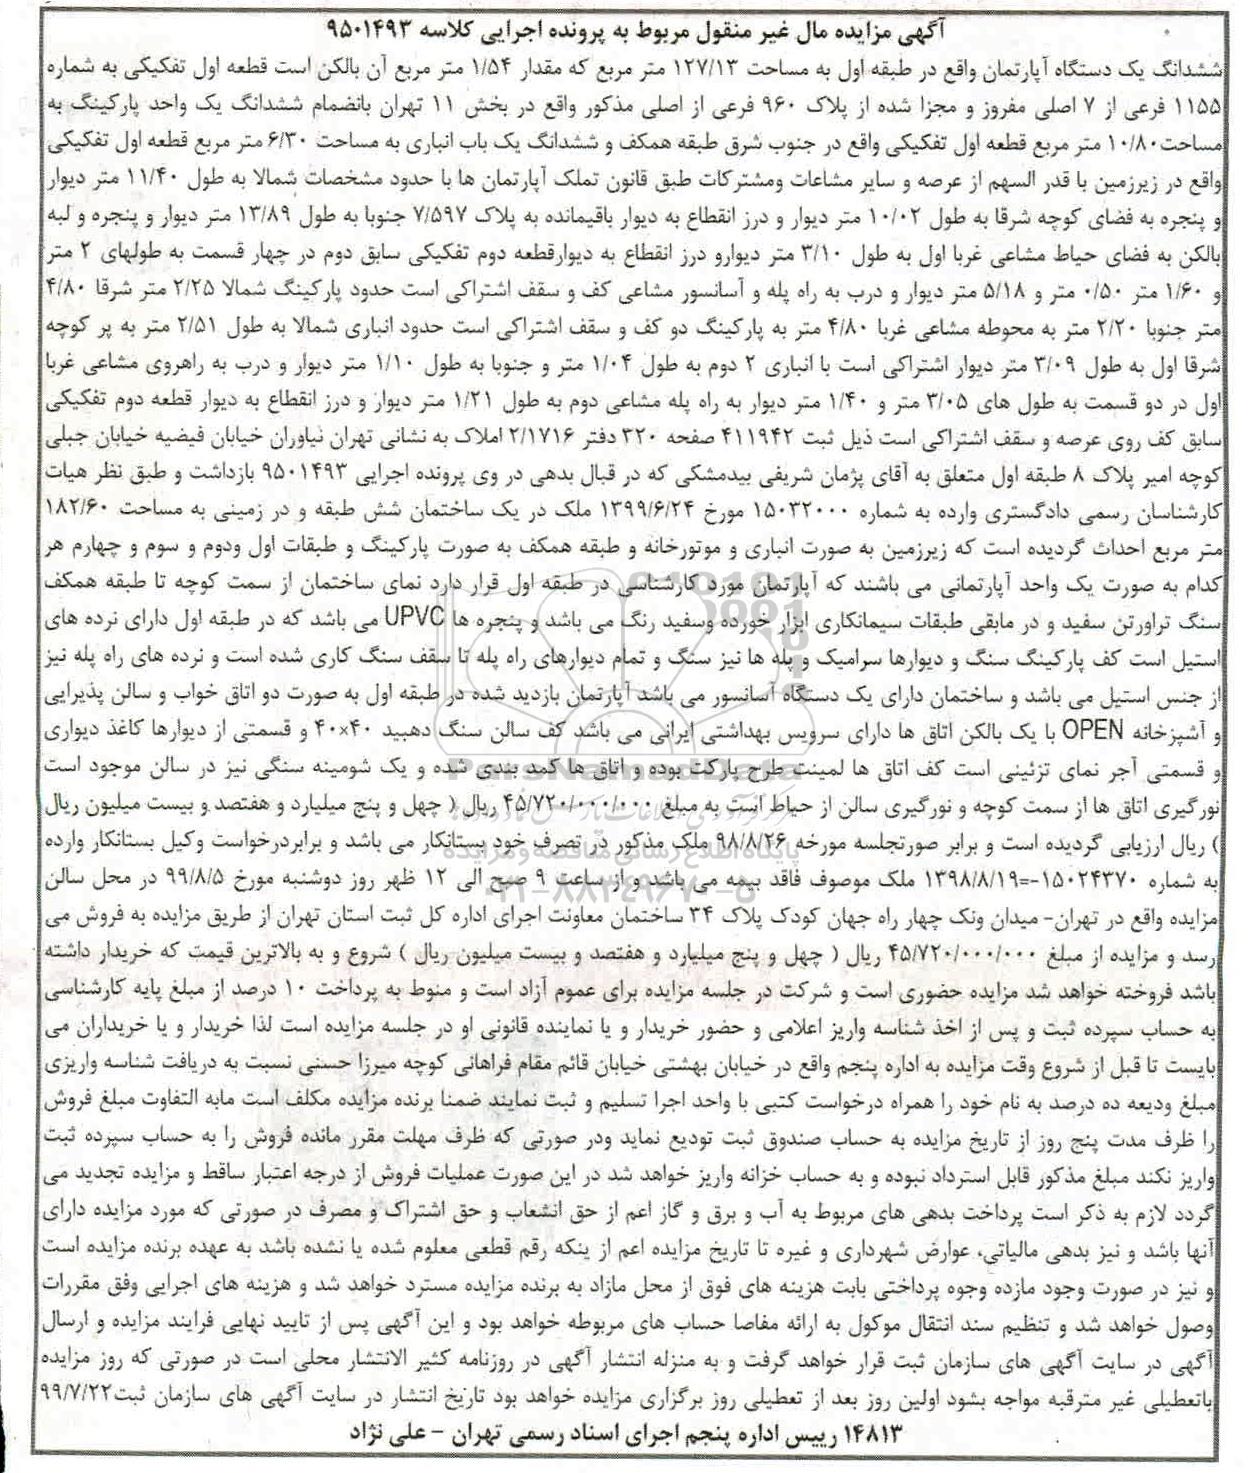 آگهی مزایده مال غیر منقول مربوط به پرونده اجرایی کلاسه ۹۵۰۱۴۹۳
ششدانگ یک دستگاه آپارتمان واقع در طبقه اول به مساحت ۱۲۷/۱۳ متر مربع که مقدار ۱/۵۴ متر مربع آن بالکن است قطعه اول تفکیکی به شماره
۱۱۵۵ فرعی از ۷ اصلی مفروز و مجزا شده از پلاک ۹۶۰ فرعی از اصلی مذکور واقع در بخش ۱۱ تهران بانضمام ششدانگ یک واحد پارکینگ به
مساحت۱۰/۸۰ متر مربع قطعه اول تفکیکی واقع در جنوب شرق طبقه همکف و ششدانگ یک باب انباری به مساحت ۶/۳۰ متر مربع قطعه اول تفکیکی
واقع در زیرزمین با قدر السهم از عرصه و سایر مشاعات ومشترکات طبق قانون تملک آپارتمان ها با حدود مشخصات شمالا به طول ۱۱/۴۰ متر دیوار
و پنجره به فضای کوچه شرقا به طول ۱۰/۰۲ متر دیوار و درز انقطاع به دیوار باقیمانده به پلاک ۷/۵۹۷ جنوبا به طول ۱۳/۸۹ متر دیوار و پنجره و لبه
بالکن به فضای حیاط مشاعی غربا اول به طول ۳/۱۰ متر دیوارو درز انقطاع به دیوارقطعه دوم تفکیکی سابق دوم در چهار قسمت به طولهای ۲ متر
و ۱/۶۰ متر ۰/۵۰ متر و ۵/۱۸ متر دیوار و درب به راه پله و آسانسور مشاعی کف و سقف اشتراکی است حدود پارکینگ شمالا ۲/۲۵ متر شرقا ۴/۸۰
متر جنوبا ۲/۲۰ متر به محوطه مشاعی غربا ۴/۸۰ متر به پارکینگ دو کف و سقف اشتراکی است حدود انباری شمالا به طول ۲/۵۱ متر به پر کوچه
شرقا اول به طول ۳/۰۹ متر دیوار اشتراکی است با انباری ۲ دوم به طول ۱/۰۴ متر و جنوبا به طول ۱/۱۰ متر دیوار و درب به راهروی مشاعی غربا
اول در دو قسمت به طول های ۳/۰۵ متر و ۱/۴۰ متر دیوار به راه پله مشاعی دوم به طول ۱/۲۱ متر دیوار و درز انقطاع به دیوار قطعه دوم تفکیکی
سابق کف روی عرصه و سقف اشتراکی است ذیل ثبت ۴۱۱۹۴۲ صفحه ۳۲۰ دفتر ۲/۱۷۱۶ املاک به نشانی تهران نیاوران خیابان فیضیه خیابان جبلی
کوچه امیر پلاک ۸ طبقه اول متعلق به آقای پژمان شریفی بیدمشکی که در قبال بدهی در وی پرونده اجرایی ۹۵۰۱۴۹۳ بازداشت و طبق نظر هیات
کارشناسان رسمی دادگستری وارده به شماره ۱۵۰۳۲۰۰۰ مورخ ۱۳۹۹/۶/۲۴ ملک در یک ساختمان شش طبقه و در زمینی به مساحت ۱۸۲/۶۰
متر مربع احداث گردیده است که زیرزمین به صورت انباری و موتورخانه و طبقه همکف به صورت پارکینگ و طبقات اول ودوم و سوم و چهارم هر
کدام به صورت یک واحد آپارتمانی می باشند که آپارتمان مورد کارشناسی در طبقه اول قرار دارد نمای ساختمان از سمت کوچه تا طبقه همکف
سنگ تراورتن سفید و در مابقی طبقات سیمانکاری ابزار خورده وسفید رنگ می باشد و پنجره ها UPVC می باشد که در طبقه اول دارای نرده های
استیل است کف پارکینگ سنگ و دیوارها سرامیک و پله ها نیز سنگ و تمام دیوارهای راه پله تا سقف سنگ کاری شده است و نرده های راه پله نیز
از جنس استیل می باشد و ساختمان دارای یک دستگاه آسانسور می باشد آپارتمان بازدید شده در طبقه اول به صورت دو اتاق خواب و سالن پذیرایی
و آشپزخانه OPEN با یک بالکن اتاق ها دارای سرویس بهداشتی ایرانی می باشد کف سالن سنگ دهبید ۴۰×۴۰ و قسمتی از دیوارها کاغذ دیواری
و قسمتی آجر نمای تزئینی است کف اتاق ها لمینت طرح پارکت بوده و اتاق ها کمد بندی شده و یک شومینه سنگی نیز در سالن موجود است
نورگیری اتاق ها از سمت کوچه و نورگیری سالن از حیاط است به مبلغ ۴۵/۷۲۰/۰۰۰/۰۰۰ ریال ( چهل و پنج میلیارد و هفتصد و بیست میلیون ریال
) ریال ارزیابی گردیده است و برابر صورتجلسه مورخه ۹۸/۸/۲۶ ملک مذکور در تصرف خود بستانکار می باشد و برابردرخواست وکیل بستانکار وارده
به شماره ۱۵۰۲۴۳۷۰-=۱۳۹۸/۸/۱۹ ملک موصوف فاقد بیمه می باشد و از ساعت ۹ صبح الی ۱۲ ظهر روز دوشنبه مورخ ۹۹/۸/۵ در محل سالن
مزایده واقع در تهران- میدان ونک چهار راه جهان کودک پلاک ۳۴ ساختمان معاونت اجرای اداره کل ثبت استان تهران از طریق مزایده به فروش می
رسد و مزایده از مبلغ ۴۵/۷۲۰/۰۰۰/۰۰۰ ریال ( چهل و پنج میلیارد و هفتصد و بیست میلیون ریال ) شروع و به بالاترین قیمت که خریدار داشته
باشد فروخته خواهد شد مزایده حضوری است و شرکت در جلسه مزایده برای عموم آزاد است و منوط به پرداخت ۱۰ درصد از مبلغ پایه کارشناسی
به حساب سپرده ثبت و پس از اخذ شناسه واریز اعلامی و حضور خریدار و یا نماینده قانونی او در جلسه مزایده است لذا خریدار و یا خریداران می
بایست تا قبل از شروع وقت مزایده به اداره پنجم واقع در خیابان بهشتی خیابان قائم مقام فراهانی کوچه میرزا حسنی نسبت به دریافت شناسه واریزی
مبلغ ودیعه ده درصد به نام خود را همراه درخواست کتبی با واحد اجرا تسلیم و ثبت نمایند ضمنا برنده مزایده مکلف است مابه التفاوت مبلغ فروش
را ظرف مدت پنج روز از تاریخ مزایده به حساب صندوق ثبت تودیع نماید ودر صورتی که ظرف مهلت مقرر مانده فروش را به حساب سپرده ثبت
واریز نکند مبلغ مذکور قابل استرداد نبوده و به حساب خزانه واریز خواهد شد در این صورت عملیات فروش از درجه اعتبار ساقط و مزایده تجدید می
گردد لازم به ذکر است پرداخت بدهی های مربوط به آب و برق و گاز اعم از حق انشعاب و حق اشتراک و مصرف در صورتی که مورد مزایده دارای
آنها باشد و نیز بدهی مالیاتی، عوارض شهرداری و غیره تا تاریخ مزایده اعم از ینکه رقم قطعی معلوم شده یا نشده باشد به عهده برنده مزایده است
و نیز در صورت وجود مازده وجوه پرداختی بابت هزینه های فوق از محل مازاد به برنده مزایده مسترد خواهد شد و هزینه های اجرایی وفق مقررات
وصول خواهد شد و تنظیم سند انتقال موکول به ارائه مفاصا حساب های مربوطه خواهد بود و این آگهی پس از تایید نهایی فرایند مزایده و ارسال
آگهی در سایت آگهی های سازمان ثبت قرار خواهد گرفت و به منزله انتشار آگهی در روزنامه کثیر الانتشار محلی است در صورتی که روز مزایده
باتعطیلی غیر مترقبه مواجه بشود اولین روز بعد از تعطیلی روز برگزاری مزایده خواهد بود تاریخ انتشار در سایت آگهی های سازمان ثبت۹۹/۷/۲۲
۱۴۸۱۳ رییس اداره پنجم اجرای اسناد رسمی تهران - علی نژاد
ParsNamadData
پایگاه اطلاع رسانی مناقصه و مزایده